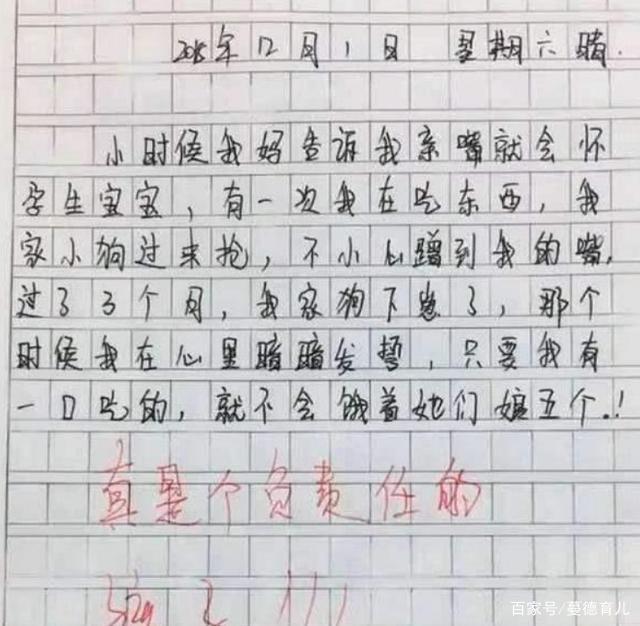 2018年12月1日 星期六 晴.
小时候我妈告诉我亲嘴就会怀
孕生宝宝，有一次我在吃东西，我
家小狗过来抢，不小心蹭到我的嘴.
过了3个月，我家狗下崽了，那个
时候我在心里暗暗发誓，只要我有
一口吃的，就不会饿着她们娘五个.！
真是个负责任的
百家号/蔓德育儿